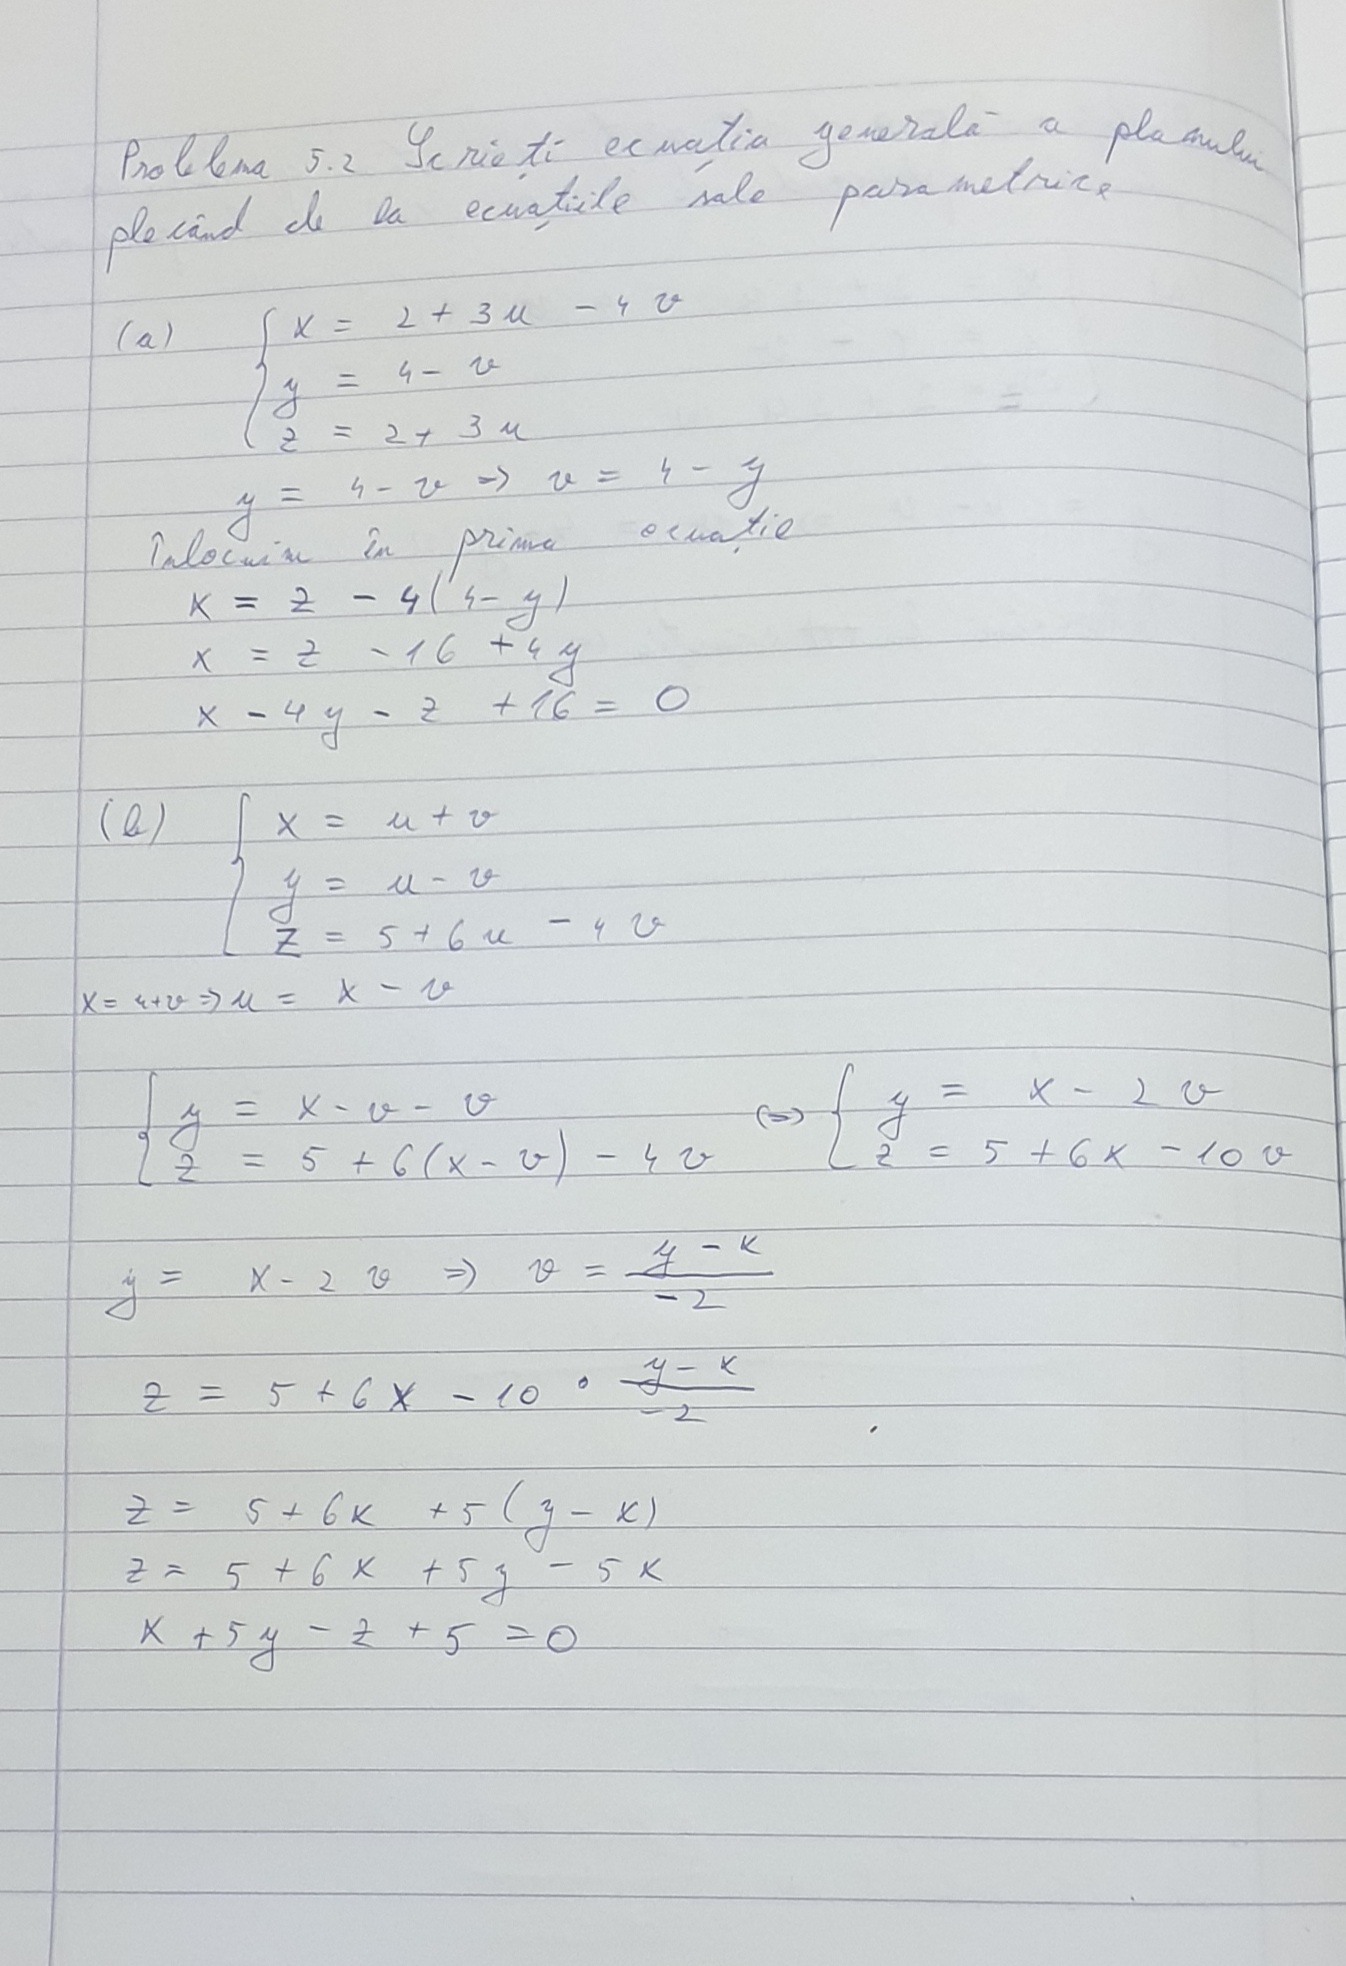 Problema 5.2 Scrieți ecuația generală a planului
plecând de la ecuațiile sale parametrice
(a) { x = 2 + 3u - 4v
y = 4 - v
z = 2 + 3u
y = 4 - v => v = 4 - y
Înlocuim în prima ecuație
x = z - 4(4 - y)
x = z - 16 + 4y
x - 4y - z + 16 = 0
(b) { x = u + v
y = u - v
z = 5 + 6u - 4v
x = u + v => u = x - v
{ y = x - v - v <=> { y = x - 2v
z = 5 + 6(x - v) - 4v z = 5 + 6x - 10v
y = x - 2v => v = (y - x)/(-2)
z = 5 + 6x - 10 · (y - x)/(-2)
z = 5 + 6x + 5(y - x)
z = 5 + 6x + 5y - 5x
x + 5y - z + 5 = 0